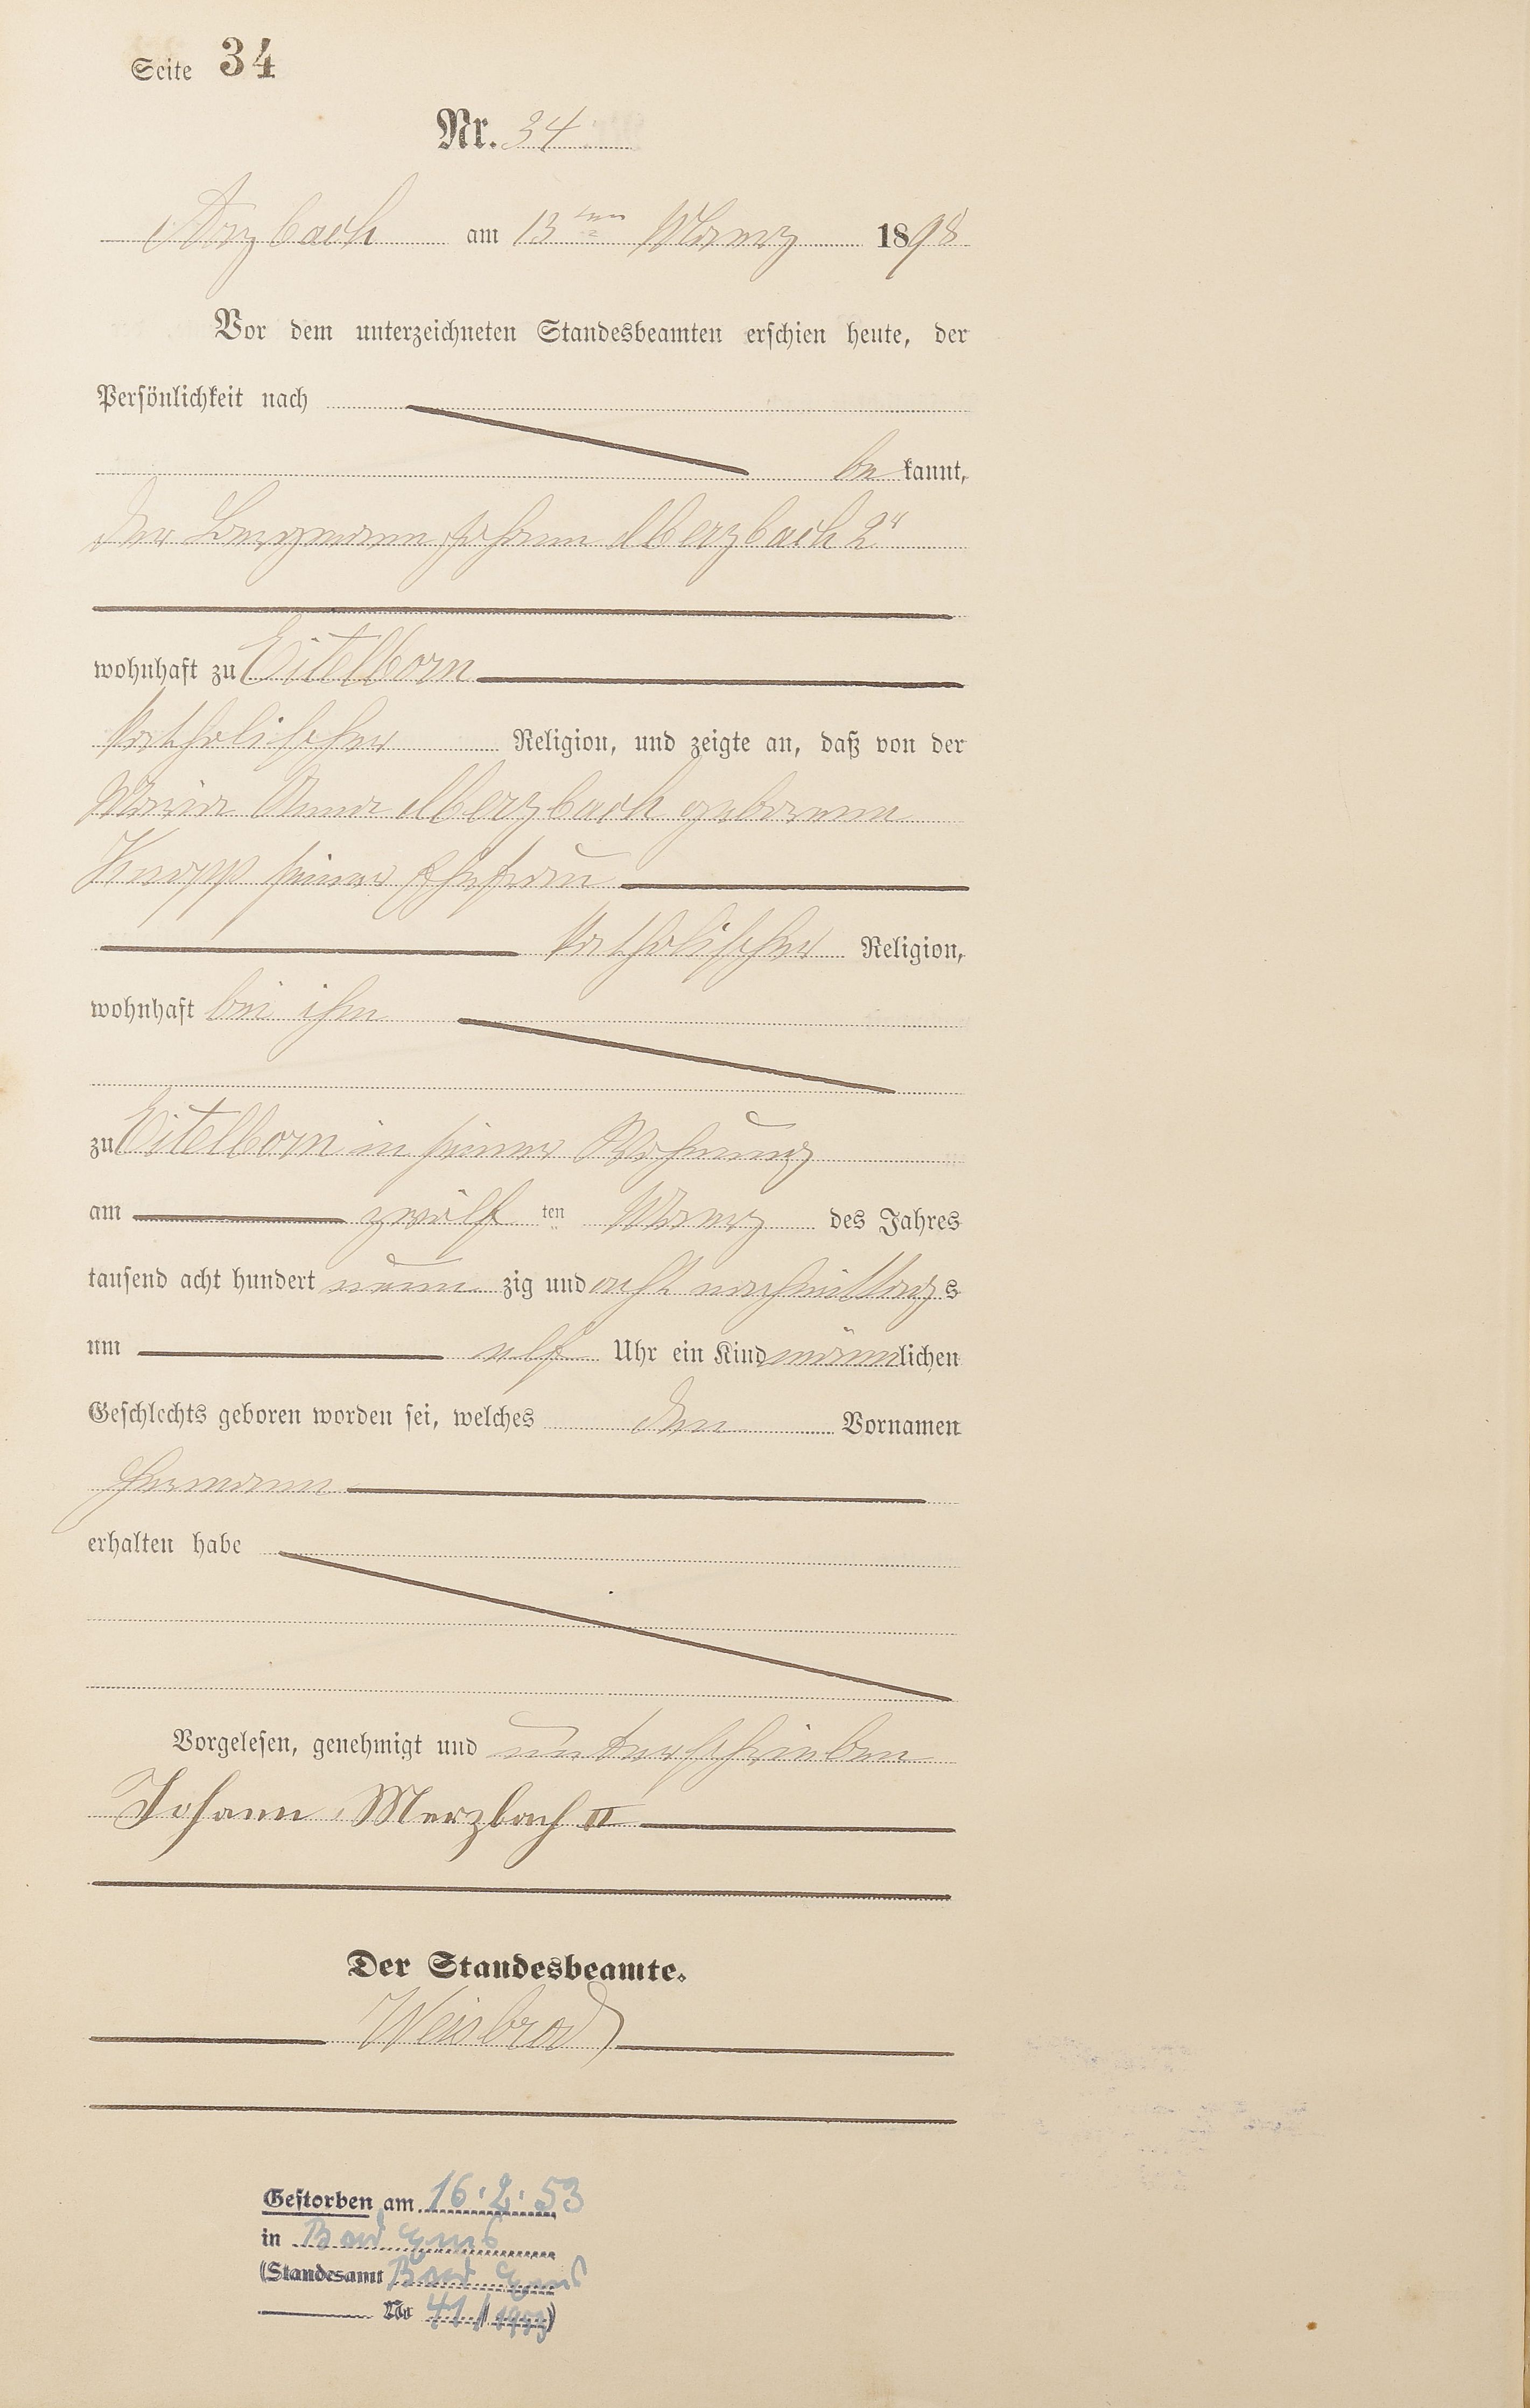 Seite 34
Nr. 34
Arzbach am 13ten Maerz 1898
Vor dem unterzeichneten Standesbeamten erschien heute, der
Persönlichkeit nach
bekannt,
der Bergmann Johann Merzbach 2r
wohnhaft zu Eitelborn
katholischer Religion, und zeigte an, daß von der
Maria Anna Merzbach geborenen
Knopp seiner Ehefrau
katholischer Religion,
wohnhaft bei ihm
zu Eitelborn in seiner Wohnung
am zwölften Maerz des Jahres
tausend acht hundert neunzig und acht nachmittags
um elf Uhr ein Kind männlichen
Geschlechts geboren worden sei, welches den Vornamen
Hermann
erhalten habe
Vorgelesen, genehmigt und unterschrieben
Johann Merzbach II
Der Standesbeamte.
Weisbrod
Gestorben am 16.2.53
in Bad Ems
(Standesamt Bad Ems
No 41/1953)